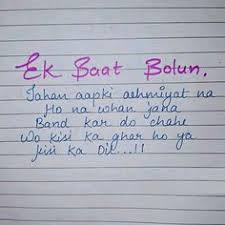 Ek Baat Bolun.
Jahan aapki aehmiyat na
Ho na whan jana
Band kar do chahe
Wo kisi ka ghar ho ya
kisi ka Dil...!!